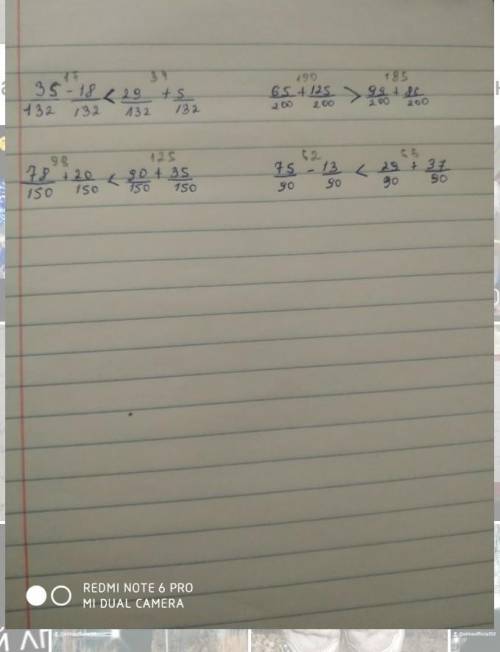 17 34 190 185
35/132 - 18/132 < 29/132 + 5/132 65/200 + 125/200 > 99/200 + 86/200
98 125 62
78/150 + 20/150 < 90/150 + 35/150 75/90 - 13/90 < 29/90 + 37/90
REDMI NOTE 6 PRO
MI DUAL CAMERA